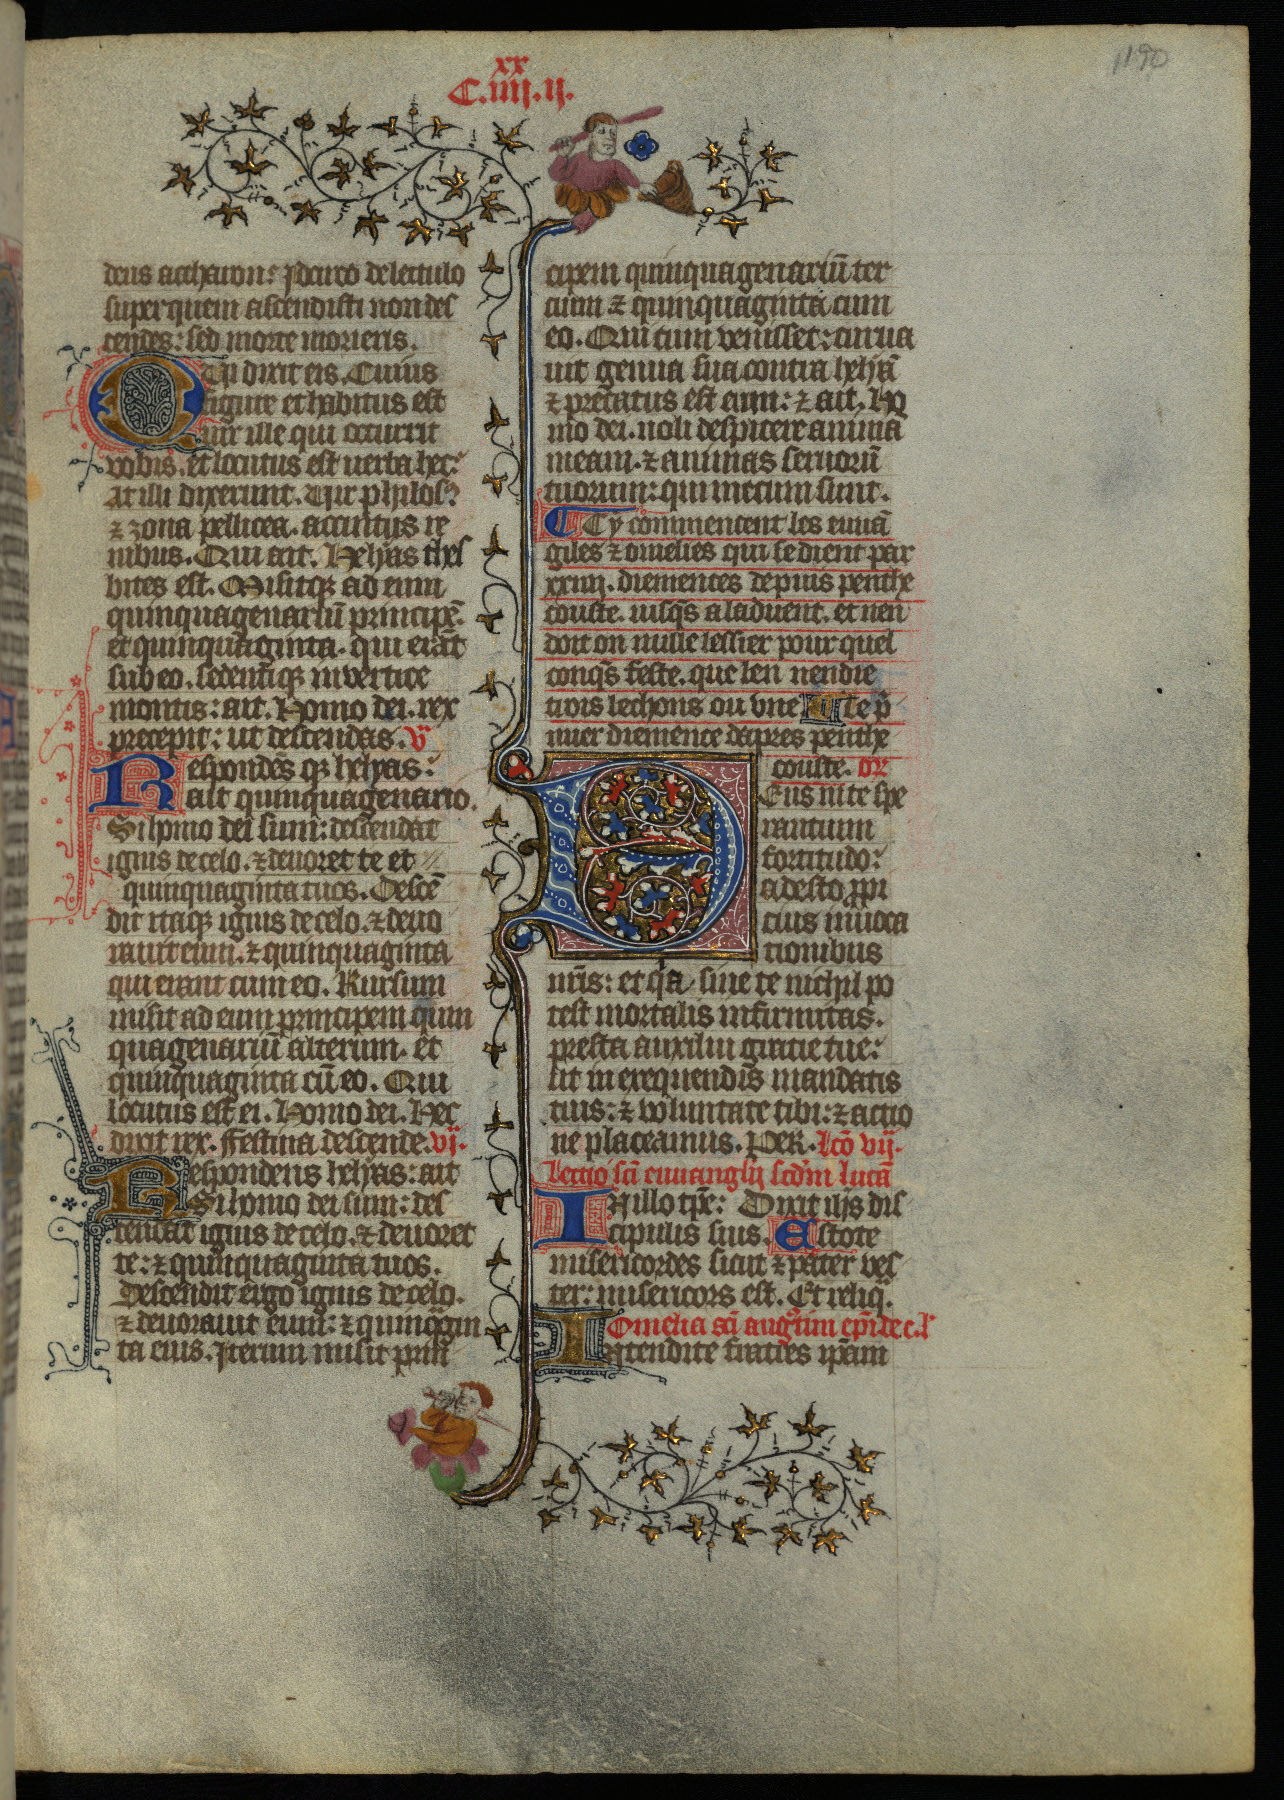 xx
C.iiij.ij.
1190
deus accharon: Jdcirco de lectulo
super quem ascendisti non des
cendes: sed morte morieris.
Qui dixit eis. Cuius
figure et habitus est
uir ille qui occurrit
vobis. et locutus est uerba hec:
At illi dixerunt. Uir philosꝰ
⁊ zona pellicea. accinctus re
nibus. Qui ait. Helyas thes
bites est. Misitqꝫ ad eum
quinquagenariū principē.
et quinquaginta. qui erāt
sub eo. sedentiqꝫ in vertice
montis: ait. Homo dei. rex
precepit: ut descendas. v̾
Respondēs qꝫ helyas:
ait quinquagenario.
Si homo dei sum: descendat
ignis de celo. ⁊ deuoret te et
quinquaginta tuos. Descē
dit itaqꝫ ignis de celo. ⁊ deuo
rauit eum. ⁊ quinquaginta
qui erant cum eo. Rursum
misit ad eum principem quin
quagenariū alterum. et
quinquaginta cū eo. Qui
locutus est ei. Homo dei. Hec
dixit rex. Festina descende. vj.
Respondens helyas: ait
Si homo dei sum: des
cendat ignis de celo. ⁊ deuoret
te: ⁊ quinquaginta tuos.
Descendit ergo ignis de celo.
⁊ deuorauit eum: ⁊ quinquagin
ta eius. Jterum misit prin
cipem quinquagenariū ter
cium ⁊ quinquaginta cum
eo. Qui cum venisset: curua
uit genua sua contra helyā
⁊ precatus est eum: ⁊ ait. Ho
mo dei. noli despicere anima
meam. ⁊ animas seruorū
tuorum: qui mecum sunt.
Cy commencent les euuā
giles ⁊ omelies qui se dient par
xxiiij. diemences depuis penthe
couste. iusqs a laduent. et nen
doit on nulle lessier pour quel
conqs feste. que len nen die
trois lechons ou vne. Le p̄
mier diemence dapres penthe
couste. or̄
Deus in te spe
rantium
fortitudo:
adesto ꝓpi
cius inuoca
tionibus
nr̄is: et qꝛ sine te nichil po
test mortalis infirmitas.
presta auxiliū gratie tue:
ut in exequendis mandatis
tuis: ⁊ voluntate tibi: ⁊ actio
ne placeamus. Per. Lcō vij.
Lectio sc̄i euuanglij scd̄m lucā
In illo tp̄e: Dixit ihs dis
cipulis suis. Estote
misericordes sicut ⁊ pater ves
ter: misericors est. Et reliq̄.
Omelia sc̄i augustini ep̄i de e. l
Intendite fratres ip̄am